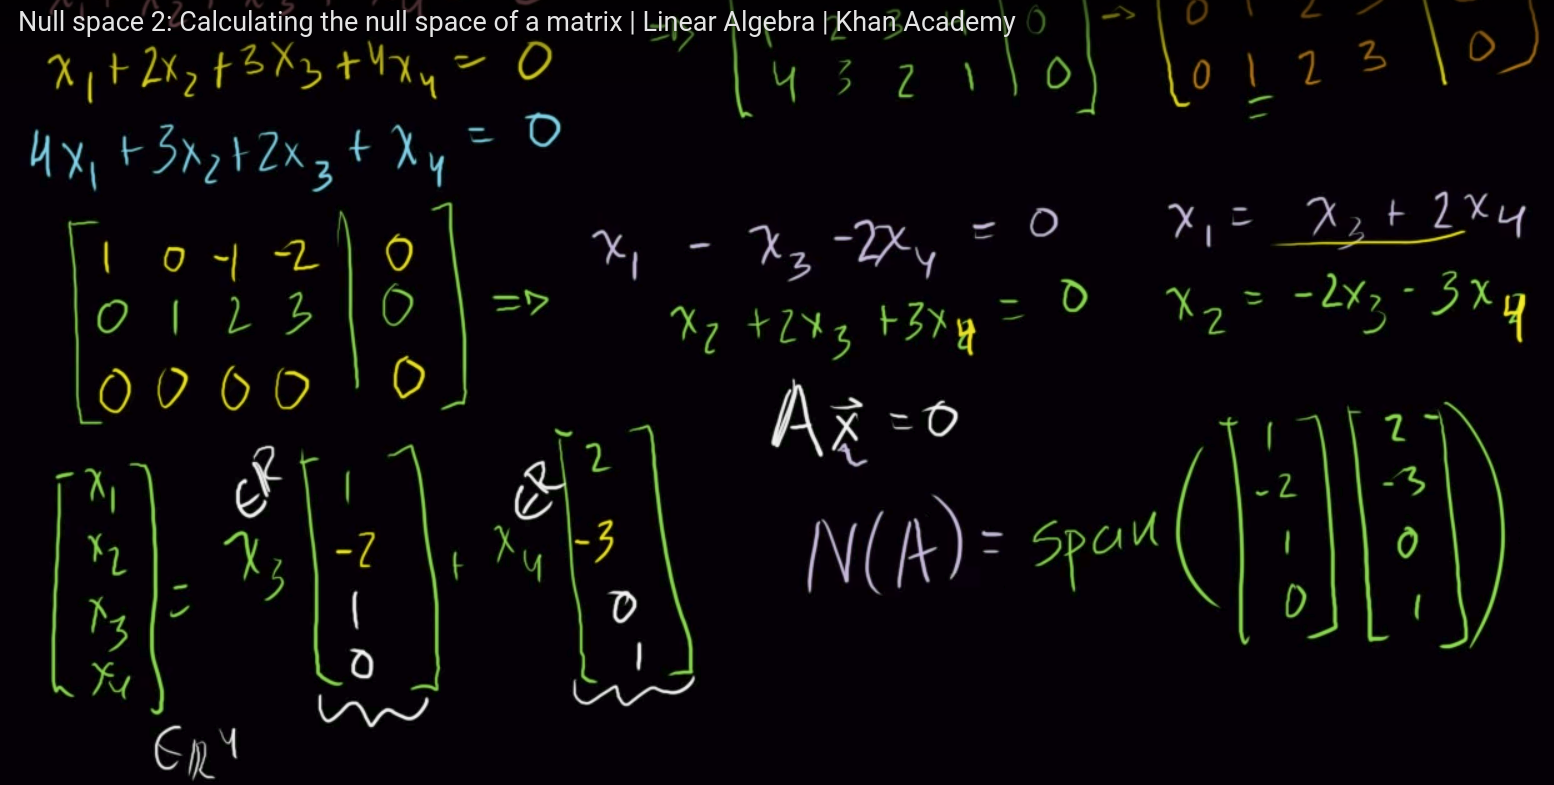 Null space 2: Calculating the null space of a matrix | Linear Algebra | Khan Academy
x₁ + 2x₂ + 3x₃ + 4x₄ = 0
4x₁ + 3x₂ + 2x₃ + x₄ = 0
4 3 2 1 | 0
→
0 1 2 3 | 0
1 0 -1 -2 | 0
0 1 2 3 | 0
0 0 0 0 | 0
⇒
x₁ - x₃ - 2x₄ = 0
x₂ + 2x₃ + 3x₄ = 0
x₁ = x₃ + 2x₄
x₂ = -2x₃ - 3x₄
Ax⃗ = 0
[x₁ x₂ x₃ x₄] = x₃ [1 -2 1 0] + x₄ [2 -3 0 1]
∈R
∈R
∈R⁴
N(A) = span([1 -2 1 0] [2 -3 0 1])